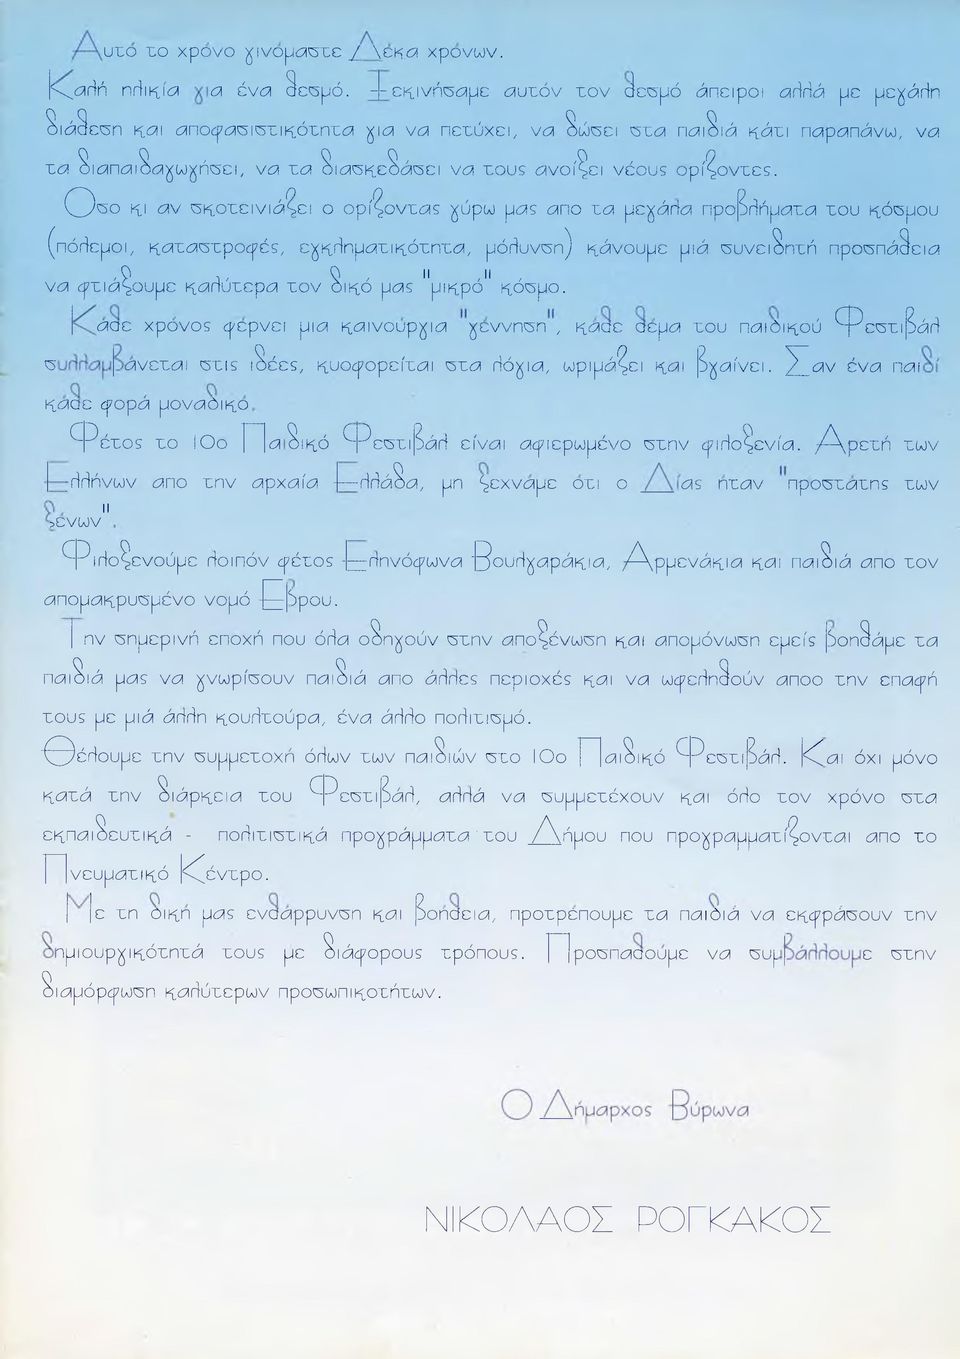 Αυτό το χρόνο γινόμαστε Δέκα χρόνων.
Καλή ηλικία για ένα θεσμό. Ξεκινήσαμε αυτόν τον θεσμό άπειροι αλλά με μεγάλη
διάθεση και αποφασιστικότητα για να πετύχει, να δώσει στα παιδιά κάτι παραπάνω, να
τα διαπαιδαγωγήσει, να τα διασκεδάσει να τους ανοίξει νέους ορίζοντες.
Όσο κι αν σκοτεινιάζει ο ορίζοντας γύρω μας απο τα μεγάλα προβλήματα του κόσμου
(πόλεμοι, καταστροφές, εγκληματικότητα, μόλυνση) κάνουμε μιά συνειδητή προσπάθεια
να φτιάξουμε καλύτερα τον δικό μας "μικρό" κόσμο.
Κάθε χρόνος φέρνει μια καινούργια "γέννηση", κάθε θέμα του παιδικού Φεστιβάλ
συλλαμβάνεται στις ιδέες, κυοφορείται στα λόγια, ωριμάζει και βγαίνει. Σαν ένα παιδί
κάθε φορά μοναδικό.
Φέτος το 10ο Παιδικό Φεστιβάλ είναι αφιερωμένο στην φιλοξενία. Αρετή των
Ελλήνων απο την αρχαία Ελλάδα, μη ξεχνάμε ότι ο Δίας ήταν "προστάτης των
ξένων".
Φιλοξενούμε λοιπόν φέτος Εληνόφωνα Βουλγαράκια, Αρμενάκια και παιδιά απο τον
απομακρυσμένο νομό Έβρου.
Την σημερινή εποχή που όλα οδηγούν στην αποξένωση και απομόνωση εμείς βοηθάμε τα
παιδιά μας να γνωρίσουν παιδιά απο άλλες περιοχές και να ωφεληθούν αποο την επαφή
τους με μιά άλλη κουλτούρα, ένα άλλο πολιτισμό.
Θέλουμε την συμμετοχή όλων των παιδιών στο 10ο Παιδικό Φεστιβάλ. Και όχι μόνο
κατά την διάρκεια του Φεστιβάλ, αλλά να συμμετέχουν και όλο τον χρόνο στα
εκπαιδευτικά - πολιτιστικά προγράμματα του Δήμου που προγραμματίζονται απο το
Πνευματικό Κέντρο.
Με τη δική μας ενθάρρυνση και βοήθεια, προτρέπουμε τα παιδιά να εκφράσουν την
δημιουργικότητά τους με διάφορους τρόπους. Προσπαθούμε να συμβάλλουμε στην
διαμόρφωση καλύτερων προσωπικοτήτων.
Ο Δήμαρχος Βύρωνα
ΝΙΚΟΛΑΟΣ ΡΟΓΚΑΚΟΣ